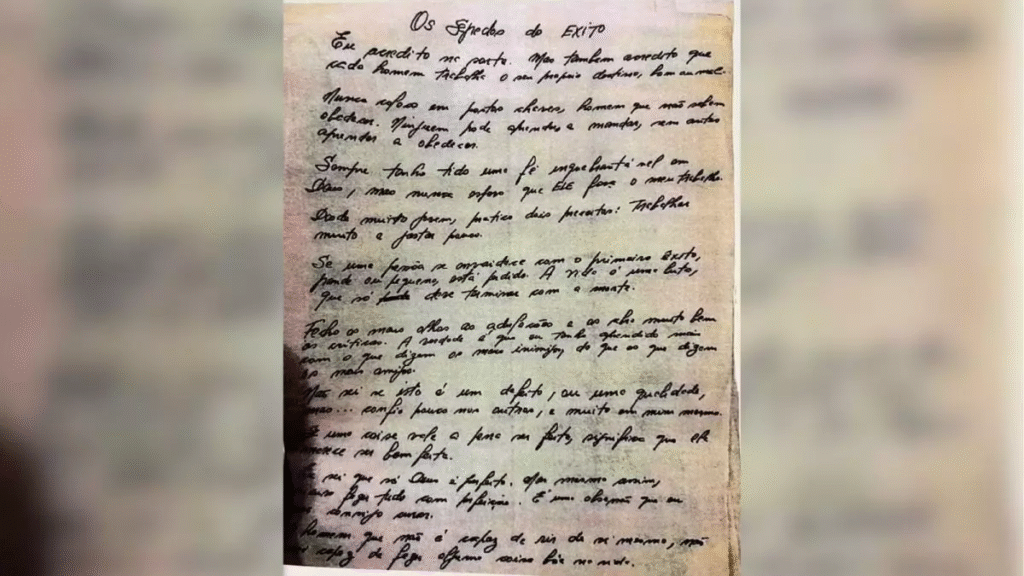 Os Segredos do EXITO
Eu acredito na sorte. Mas também acredito que
cada homem trabalhe o seu próprio destino, bom ou mal.
Nunca coloco em postos chaves, homem que não sabem
obedecer. Ninguem pode aprender a mandar, sem antes
aprender a obedecer.
Sempre tenho tido uma fé inquebrantável em
Deus, mas nunca espero que ELE faça o meu trabalho.
Desde muito jovem, pratico dois preceitos: Trabalhar
muito e gastar pouco.
Se uma pessoa se envaidece com o primeiro êxito,
grande ou pequeno, está perdido. A vida é uma luta,
que só deve terminar com a morte.
Fecho os meus olhos as adulações e os abro muito bem
as críticas. A verdade é que eu tenho aprendido mais
com o que dizem os meus inimigos, do que os que dizem
os meus amigos.
Não sei se isto é um defeito, ou uma qualidade,
mas... confio pouco nos outros, e muito em mim mesmo.
Se uma coisa vale a pena ser feita, significa que ela
merece ser bem feita.
sei que só Deus é perfeito. Mas mesmo assim,
faço tudo com perfeição. É uma obsessão que eu
comigo
homem que não é capaz de rir de si mesmo, não
capaz de fazer alguma coisa bôa na vida.